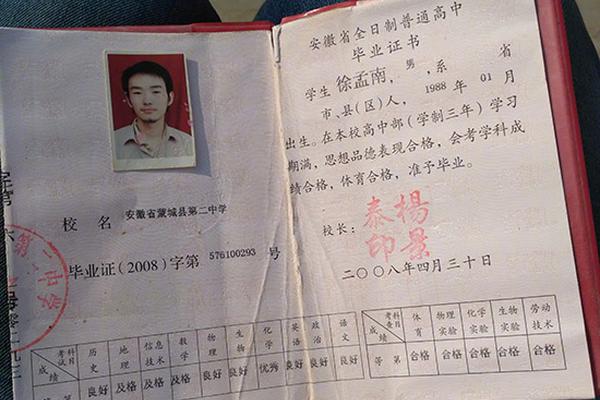 校 名 安徽省蒙城县第二中学
毕业证(2008)字第 576100293 号
第二中学
考试科目 历史 地理 信息技术 数学 物理 生物 化学 英语 政治 语文
成绩 良好 及格 及格 及格 良好 良好 优秀 良好 良好 良好
安徽省全日制普通高中
毕业证书
学生 徐孟南，男，系 省
市、县(区)人，1988 年 01 月
出生。在本校高中部(学制三年)学习
期满，思想品德表现合格，会考学科成
绩合格，体育合格，准予毕业。
校长： 楊景泰印
二〇〇八年四月三十日
考查科目 体育 物理实验 化学实验 生物实验 劳动技术
成绩
等 第 合格 合格 合格 合格 合格